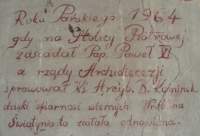 Roku Pańskiego 1964
gdy na Stolicy Piotrowej
zasiadał Pap. Paweł VI
a rządy Archidiecezji
sprawował Ks. Arcyb. B. Kominek
dzięki ofiarności wiernych
Świątynia ta została odnowiona.